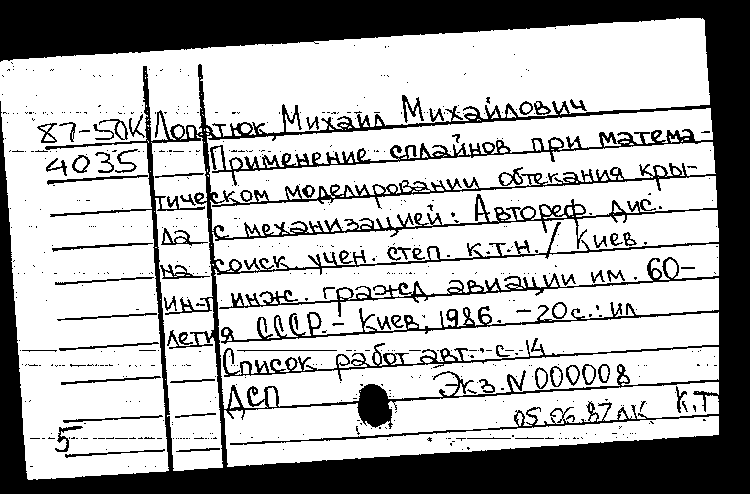 87-50К Лопатюк, Михаил Михайлович
4035 Применение сплайнов при матема-
тическом моделировании обтекания кры-
ла с механизацией: Автореф. дис.
на соиск. учен. степ. к.т.н. / Киев.
ин-т инж. гражд. авиации им. 60-
летия СССР. - Киев, 1986. - 20 с.: ил
Список работ авт.: с. 14.
ДСП Экз. N 000008
5 05.06.87 ЛК К.Т